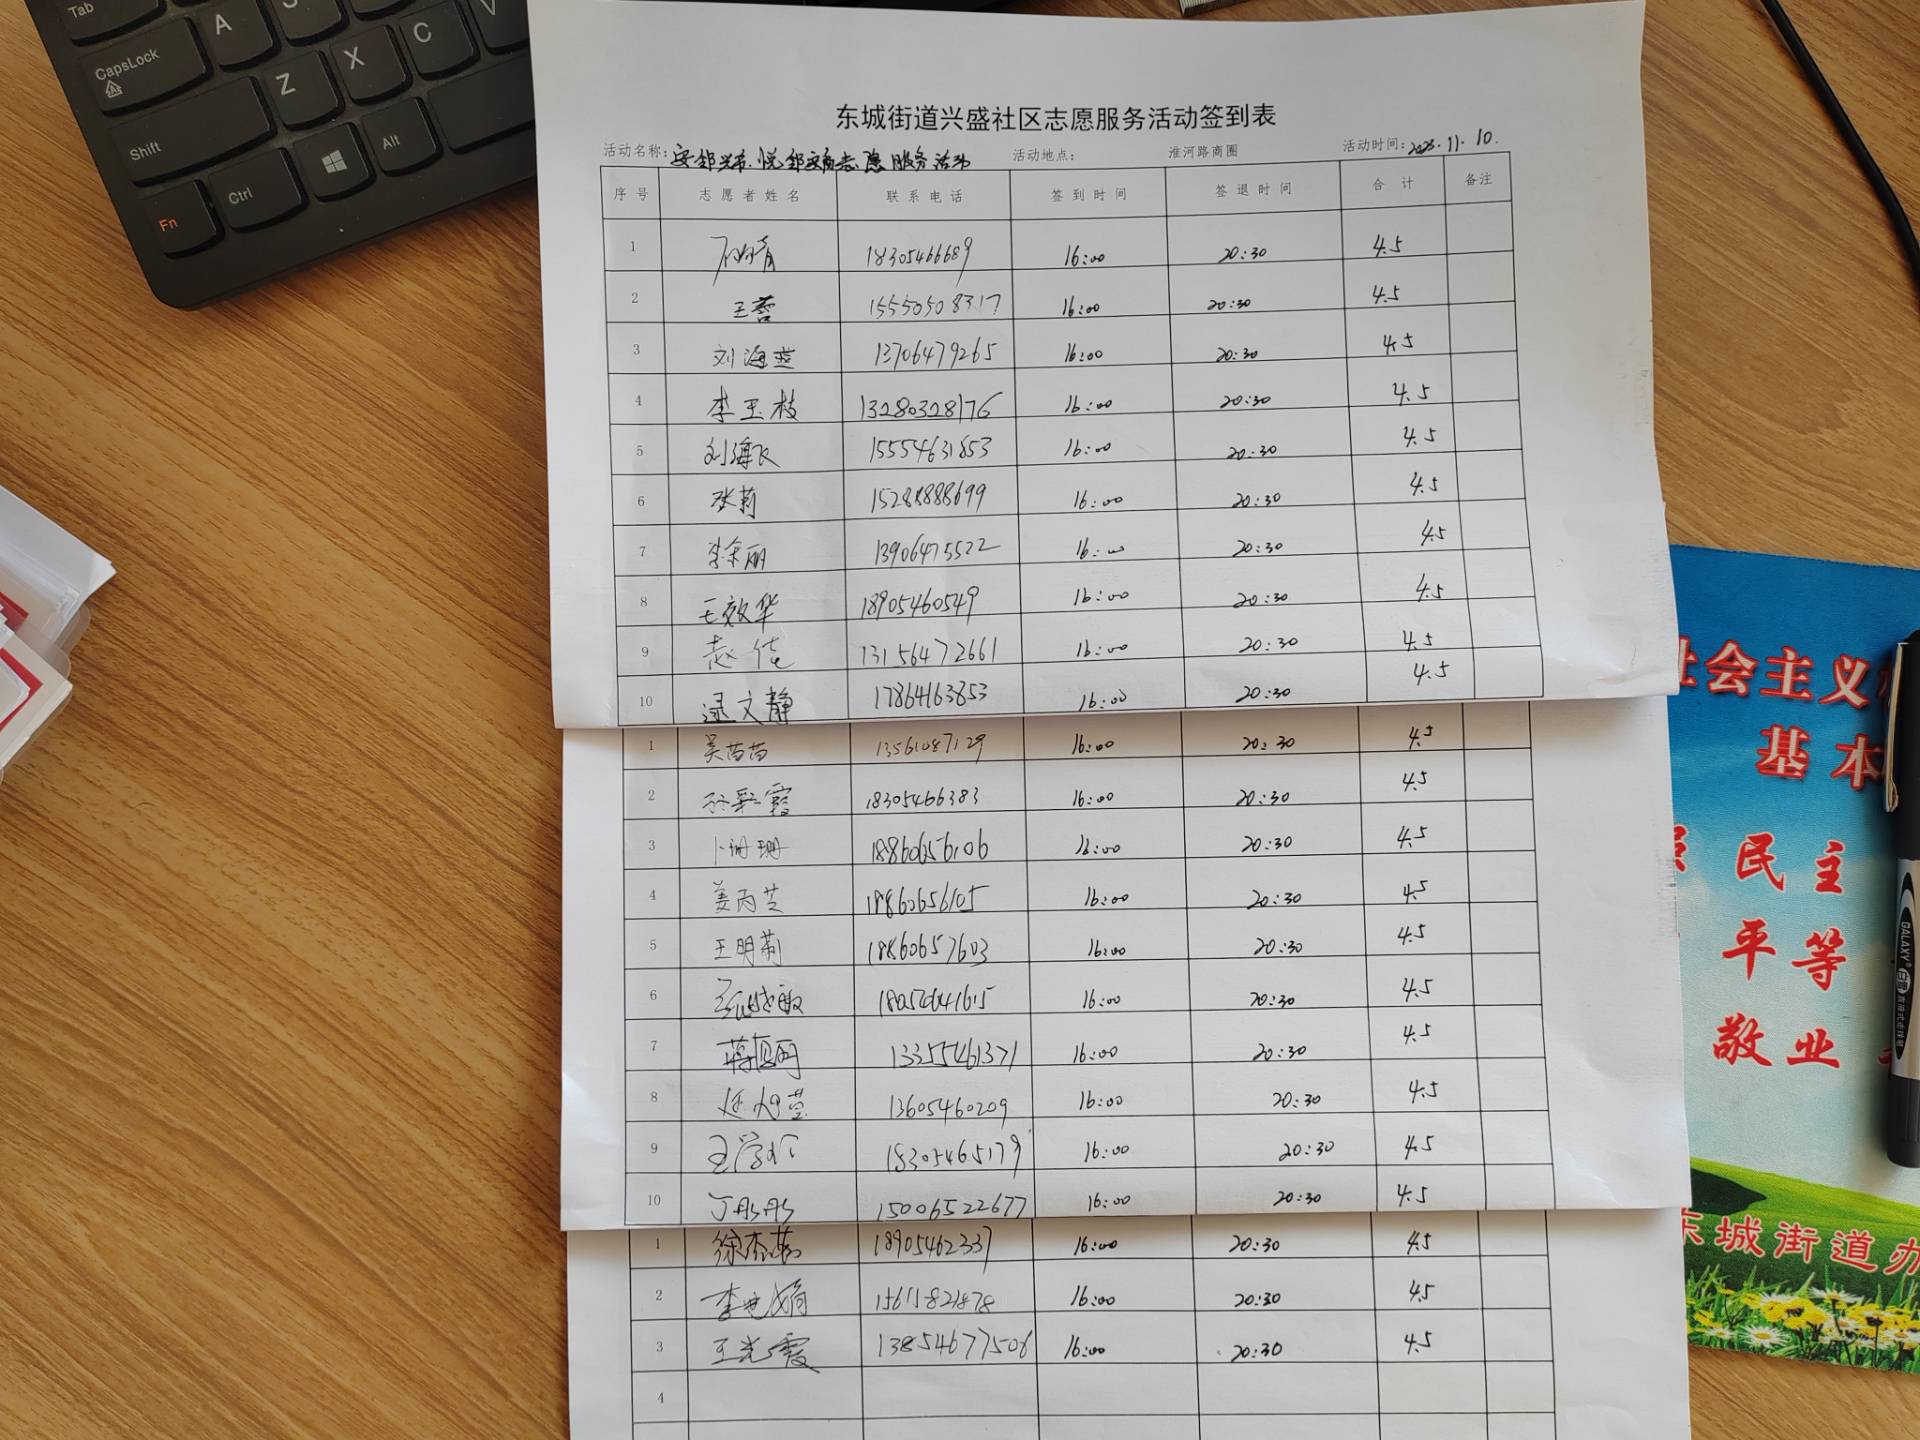 Tab
A
S
CapsLock
Z
X
C
V
Shift
Fn
Ctrl
Alt
东城街道兴盛社区志愿服务活动签到表
活动名称: 志愿服务活动 活动地点: 淮河路商圈 活动时间: 2023.11.10.
序号 志愿者姓名 联系电话 签到时间 签退时间 合计 备注
1 18305466689 16:00 20:30 4.5
2 王蓉 15550508317 16:00 20:30 4.5
3 刘海燕 13706479265 16:00 20:30 4.5
4 李玉枝 13280328176 16:00 20:30 4.5
5 刘海飞 15554631853 16:00 20:30 4.5
6 张莉 15288888699 16:00 20:30 4.5
7 李余丽 13906475522 16:00 20:30 4.5
8 王效华 18905460549 16:00 20:30 4.5
9 赵倩 13156472661 16:00 20:30 4.5
10 逯文静 17864163853 16:00 20:30 4.5
1 吴苗苗 13561087129 16:00 20:30 4.5
2 孙彩霞 18305466383 16:00 20:30 4.5
3 卜珊珊 18860656106 16:00 20:30 4.5
4 姜丙芝 18860656105 16:00 20:30 4.5
5 王明莉 18860657603 16:00 20:30 4.5
6 16:00 20:30 4.5
7 13355461371 16:00 20:30 4.5
8 13605460209 16:00 20:30 4.5
9 18305465179 16:00 20:30 4.5
10 丁彤彤 15006522677 16:00 20:30 4.5
1 徐杰茹 18905462337 16:00 20:30 4.5
2 15615821878 16:00 20:30 4.5
3 王光霞 13854677506 16:00 20:30 4.5
4
社会主义
基本
民主
平等
敬业
东城街道办
GALAXY